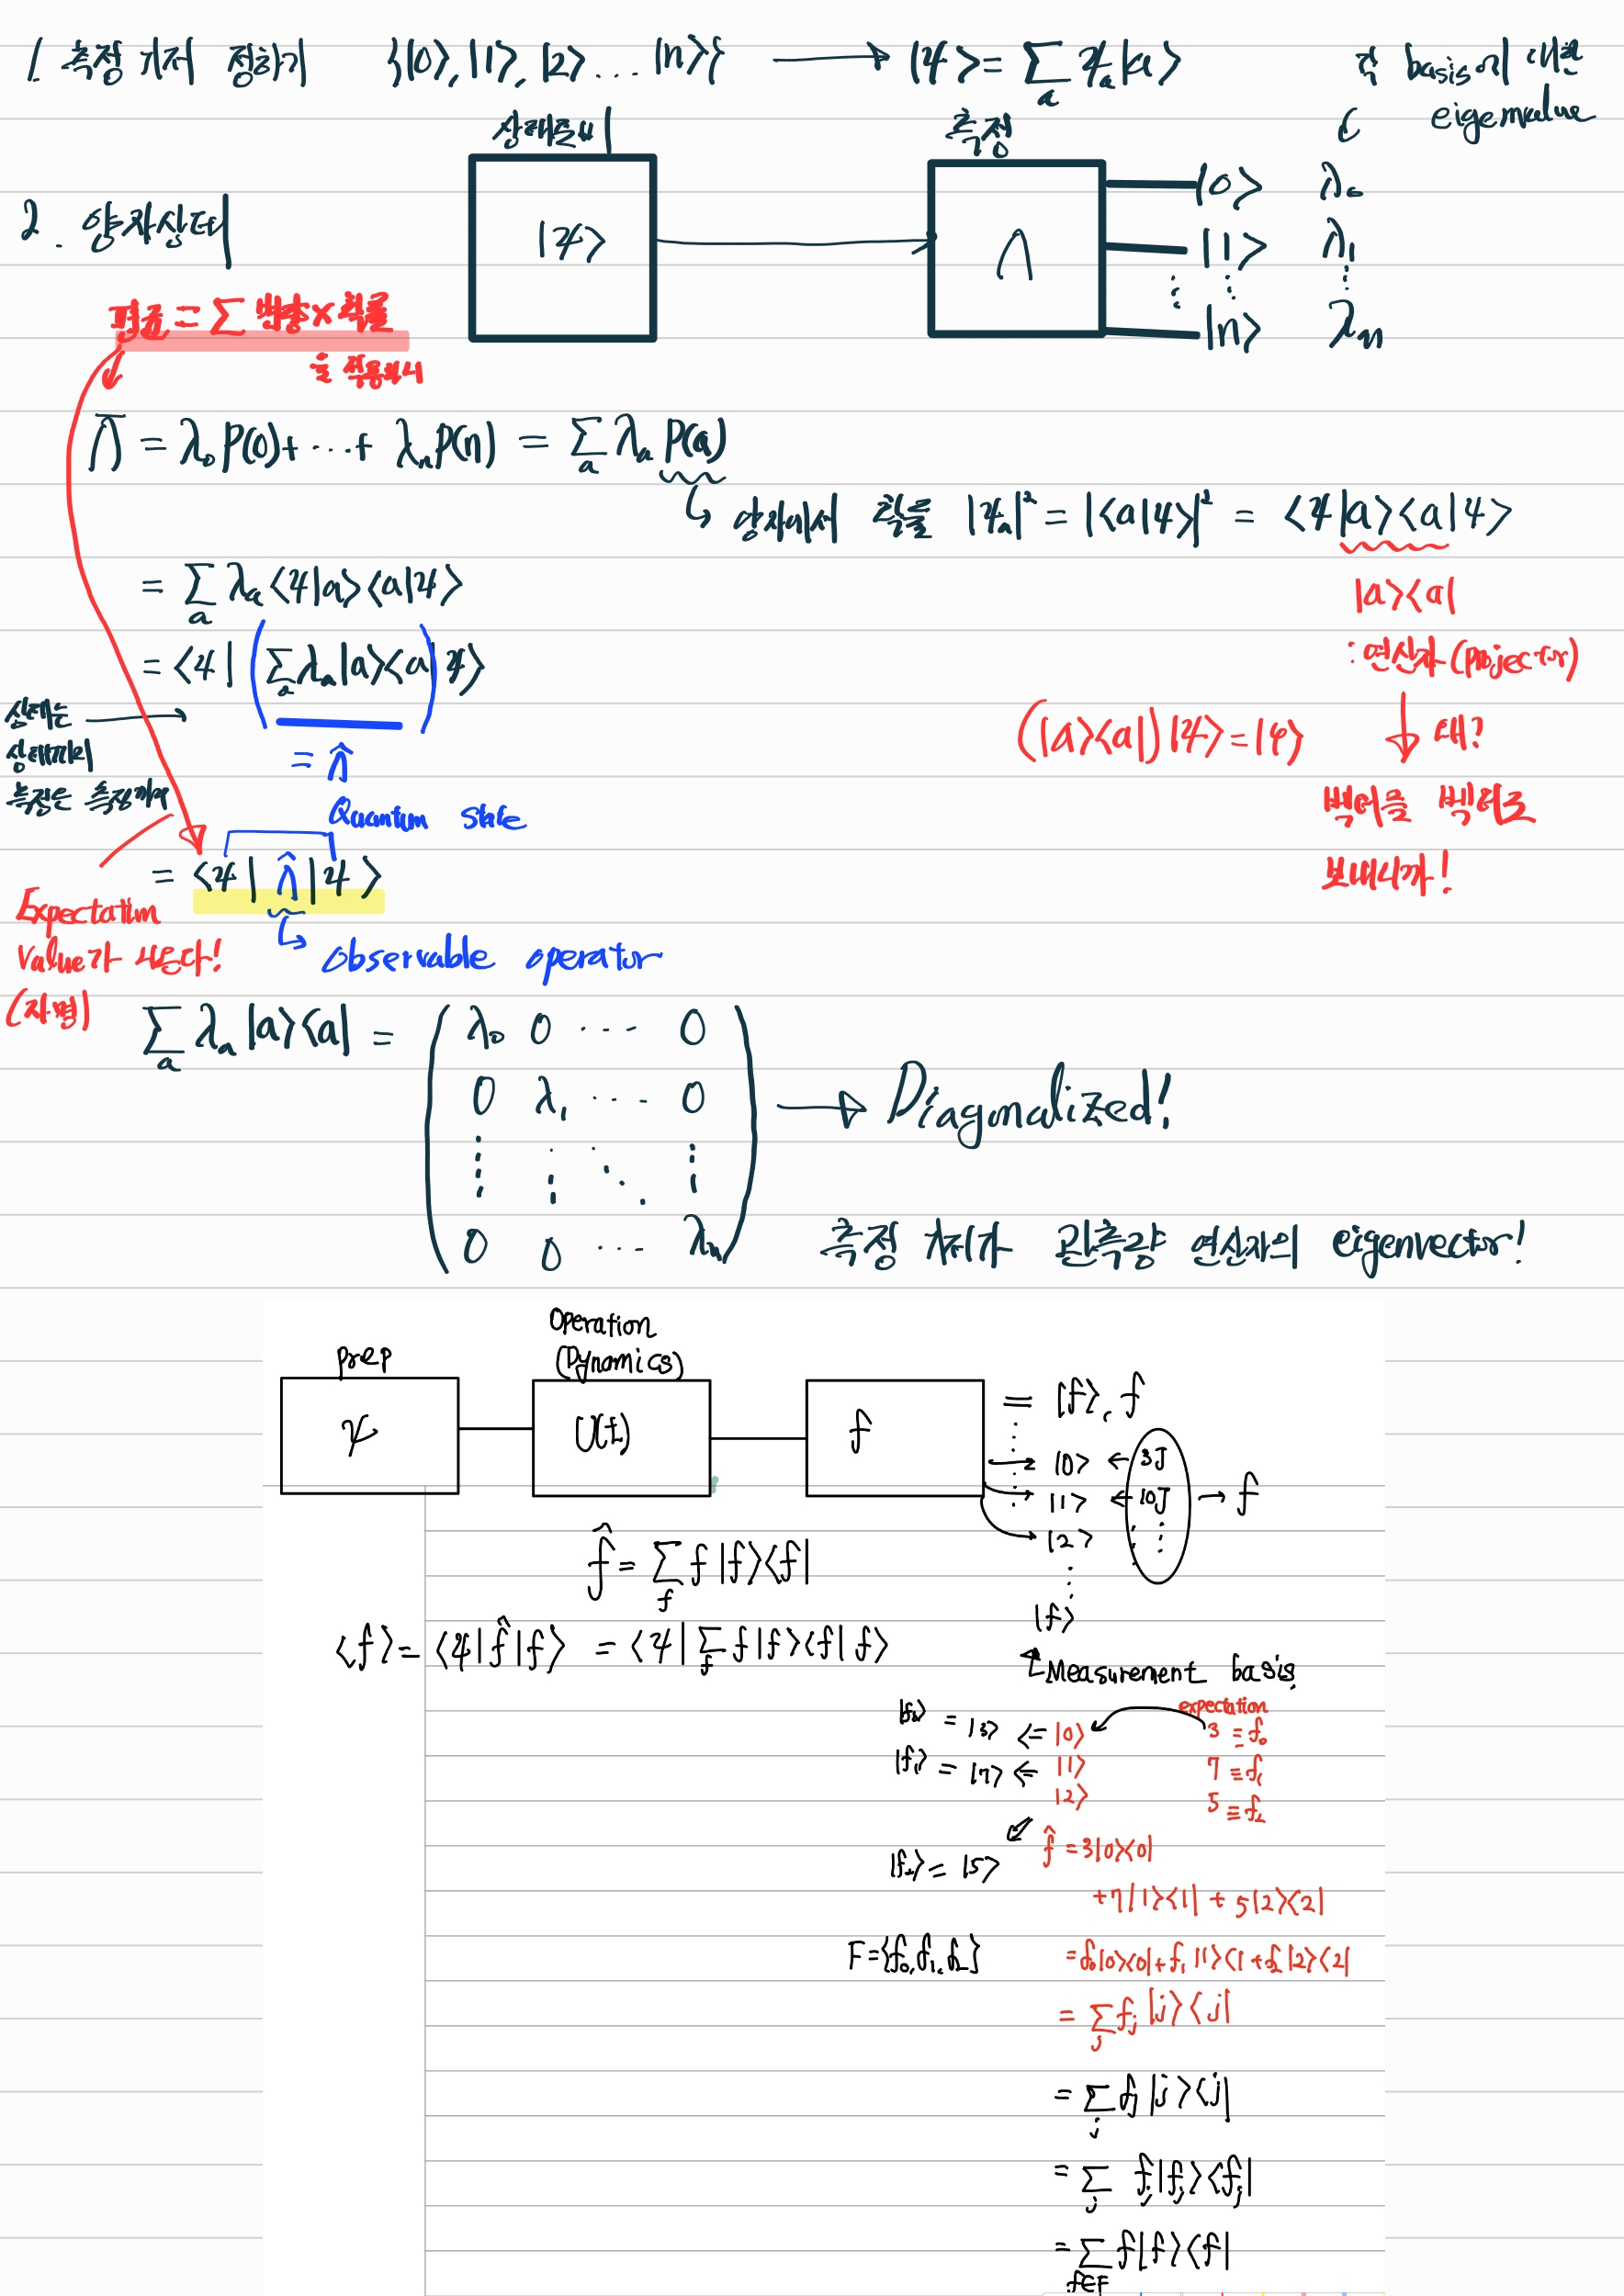 1. 측정 기저 정하기 {|0⟩, |1⟩, |2⟩ ... |n⟩} → |ψ⟩ = Σ_a ψ_a|a⟩
각 basis에 대한 eigenvalue
상태준비
측정
2. 양자상태
|ψ⟩
Λ
|0⟩ λ₀
|1⟩ λ₁
⋮ ⋮ ⋮
|n⟩ λn
평균 = Σ 변량×확률
을 적용하니
Λ̄ = λ₀P(0)+ ... + λnP(n) = Σ_a λa P(a)
↳ 양자에서 확률 |ψa|² = |⟨a|ψ⟩|² = ⟨ψ|a⟩⟨a|ψ⟩
= Σ_a λa⟨ψ|a⟩⟨a|ψ⟩
|a⟩⟨a|
: 연산자 (projector)
= ⟨ψ|(Σ_a λa|a⟩⟨a|)ψ⟩
상태는 →
상태끼리
측정은 측정끼리
= Λ̂
(|a⟩⟨a|)|ψ⟩=|φ⟩
↓ 왜?
벡터를 벡터로
보내니까!
Quantum state
= ⟨ψ|Λ̂|ψ⟩
↳ observable operator
Expectation
value가 나온다!
(자명)
Σ_a λa|a⟩⟨a| =
λ₀ 0 ... 0
0 λ₁ ... 0
⋮ ⋮ ⋱ ⋮
0 0 ... λn
→ Diagonalized!
측정 기저가 관측량 연산자의 eigenvector!
prep
Operation
(Dynamics)
ψ
U(t)
f
= |f⟩, f
|0⟩ ← 3J
|1⟩ ← 10J → f
|2⟩
⋮
|f⟩
f̂ = Σ_f f|f⟩⟨f|
⟨f⟩ = ⟨ψ|f̂|f⟩ = ⟨ψ|Σ_f f|f⟩⟨f|f⟩
Measurement basis
expectation
|f₀⟩ = |3⟩ ⇐ |0⟩ 3 = f₀
|f₁⟩ = |7⟩ ⇐ |1⟩ 7 = f₁
|2⟩ 5 = f₂
|f₂⟩ = |5⟩
f̂ = 3|0⟩⟨0|
+7|1⟩⟨1| + 5|2⟩⟨2|
F={f₀,f₁,f₂}
= f₀|0⟩⟨0|+f₁|1⟩⟨1+f₂|2⟩⟨2|
= Σ_j fj|j⟩⟨j|
= Σ_j fj|j⟩⟨j|
= Σ_j fj|fj⟩⟨fj|
= Σ_f∈F f|f⟩⟨f|